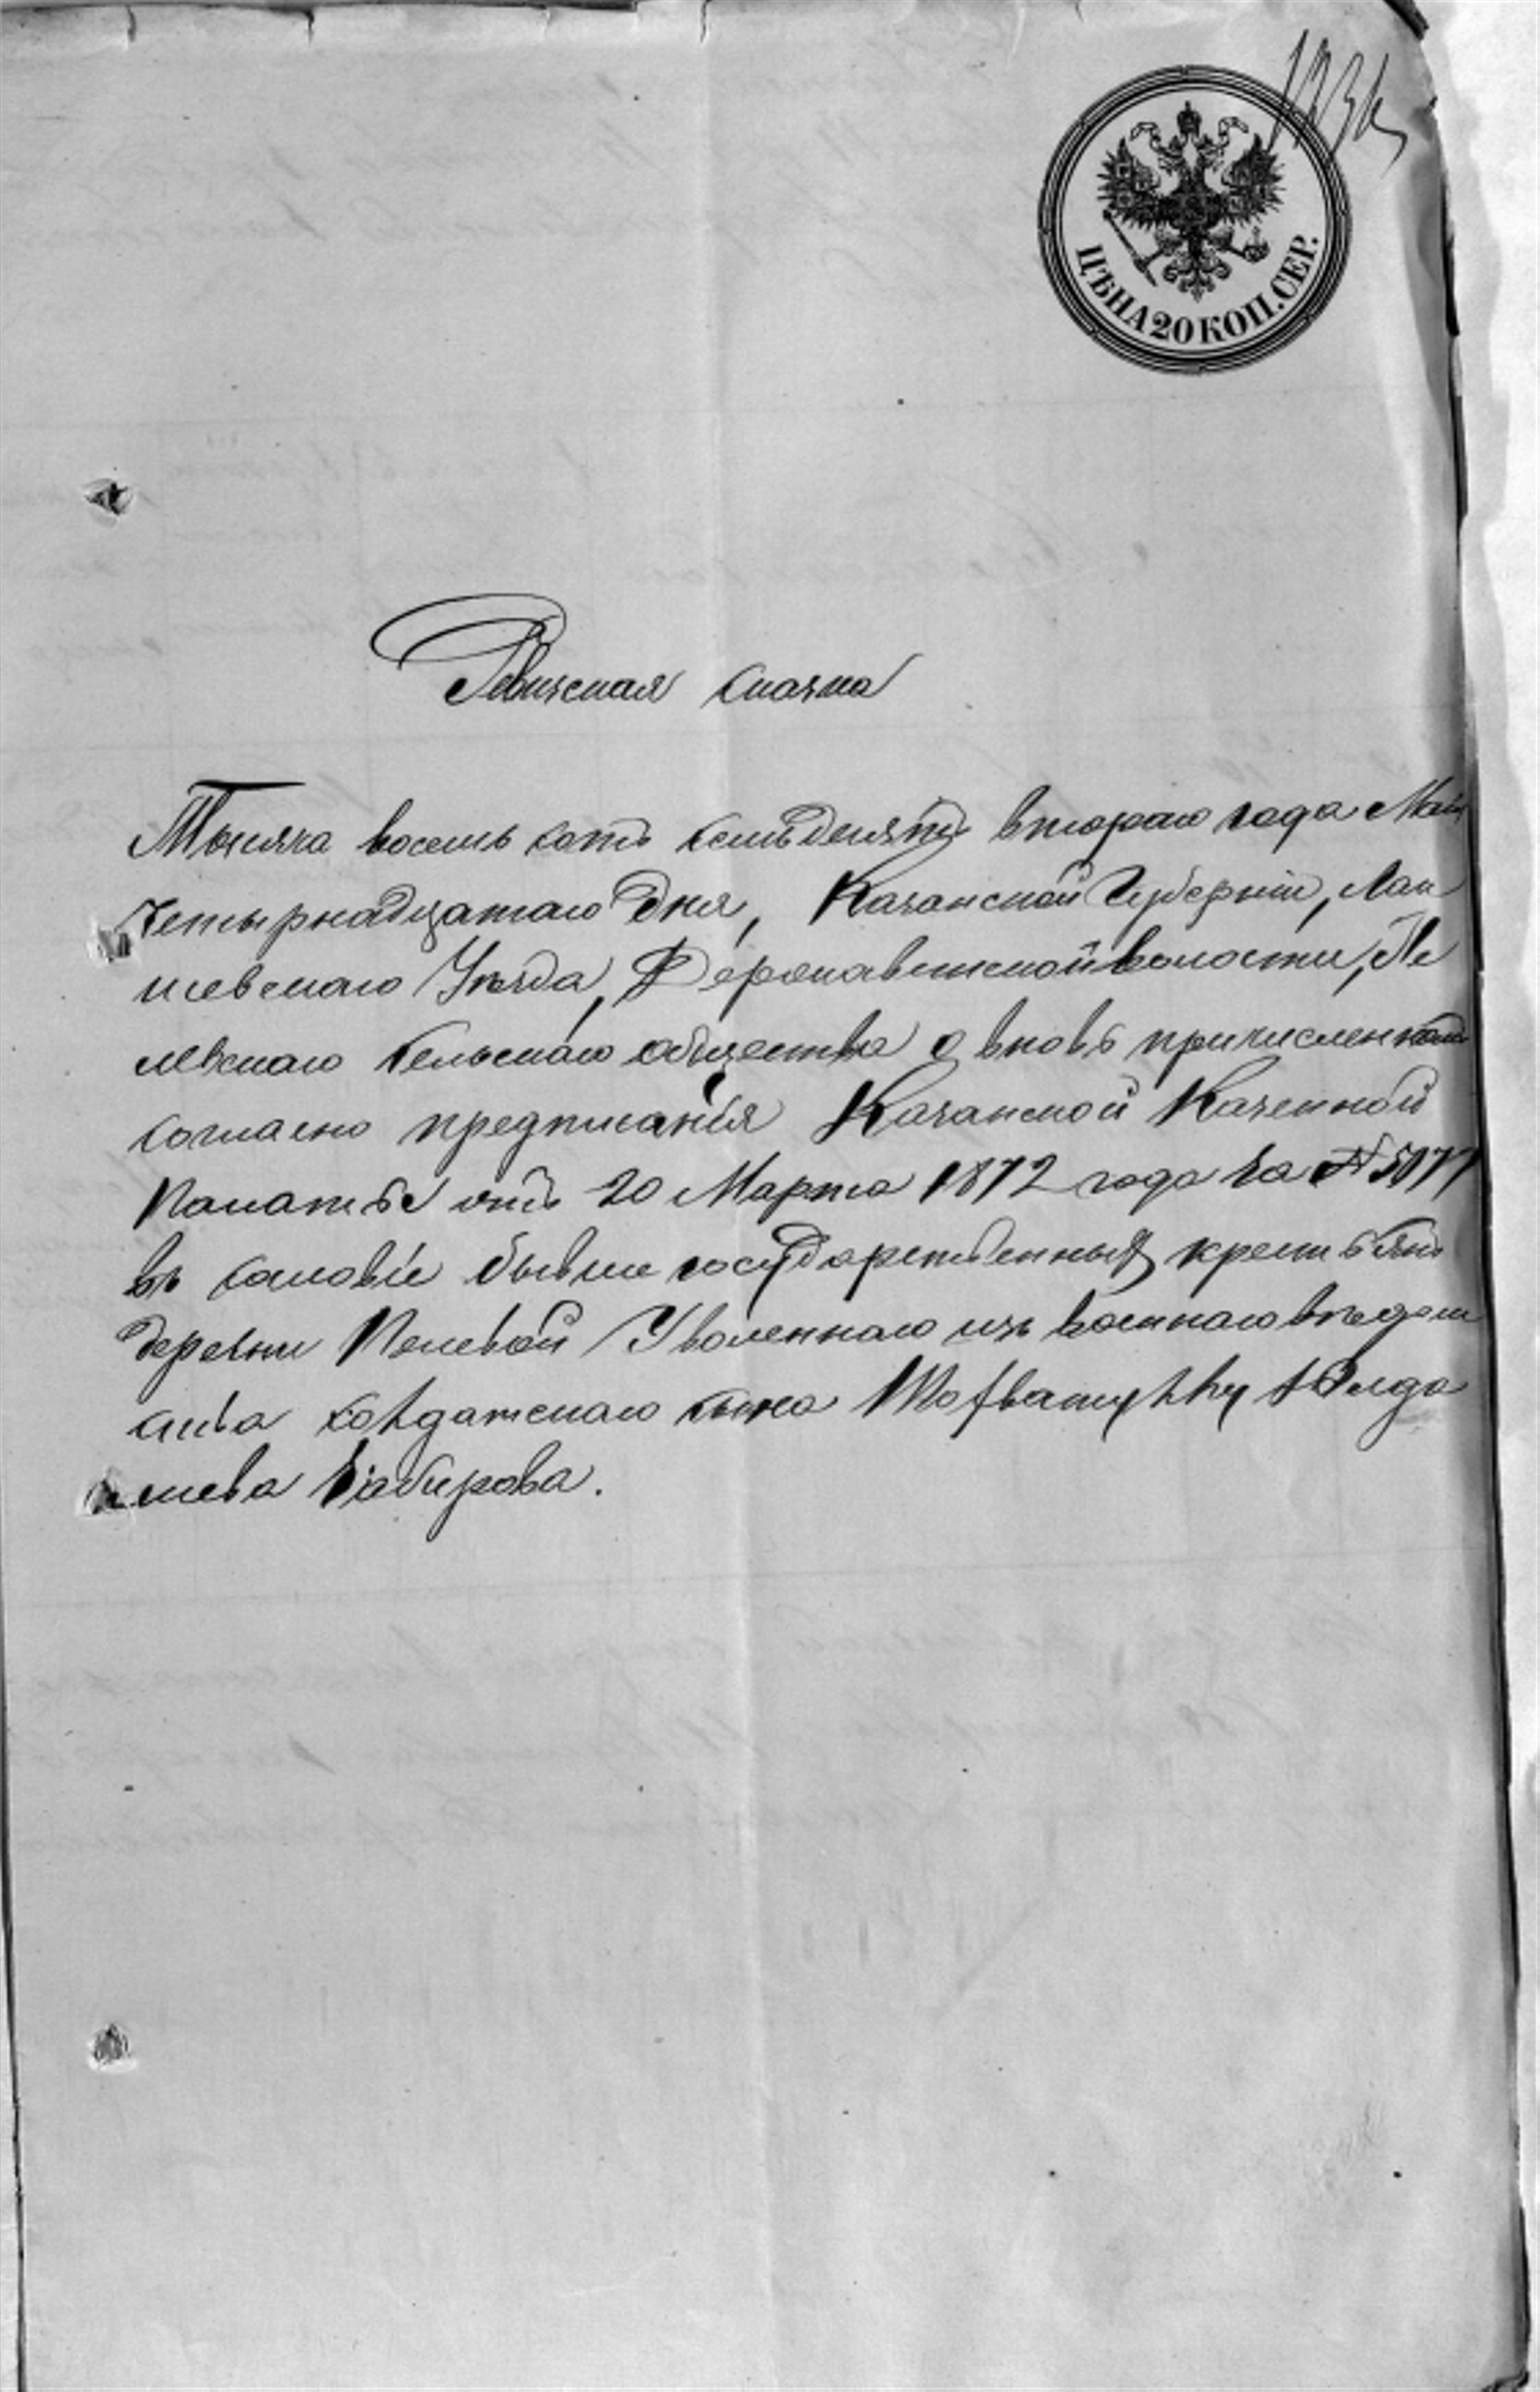 ЦѢНА 20 КОП. СЕР.
Ревизская сказка
Тысяча восемь сотъ семьдесятъ втораго года Маія
Четырнадцатаго дня, Казанской Губерніи, Лаи
шевскаго Уѣзда, Державинской волости, Пе
левскаго Сельскаго общества о вновь причисленномъ
согласно предписанія Казанской Казенной
Палаты отъ 20 Марта 1872 года за №
въ сословіе бывше государственныхъ крестьянъ
деревни Пелевой Уволеннаго изъ военнаго вѣдом
ства солдатскаго сына Юлда
шева Сабирова.